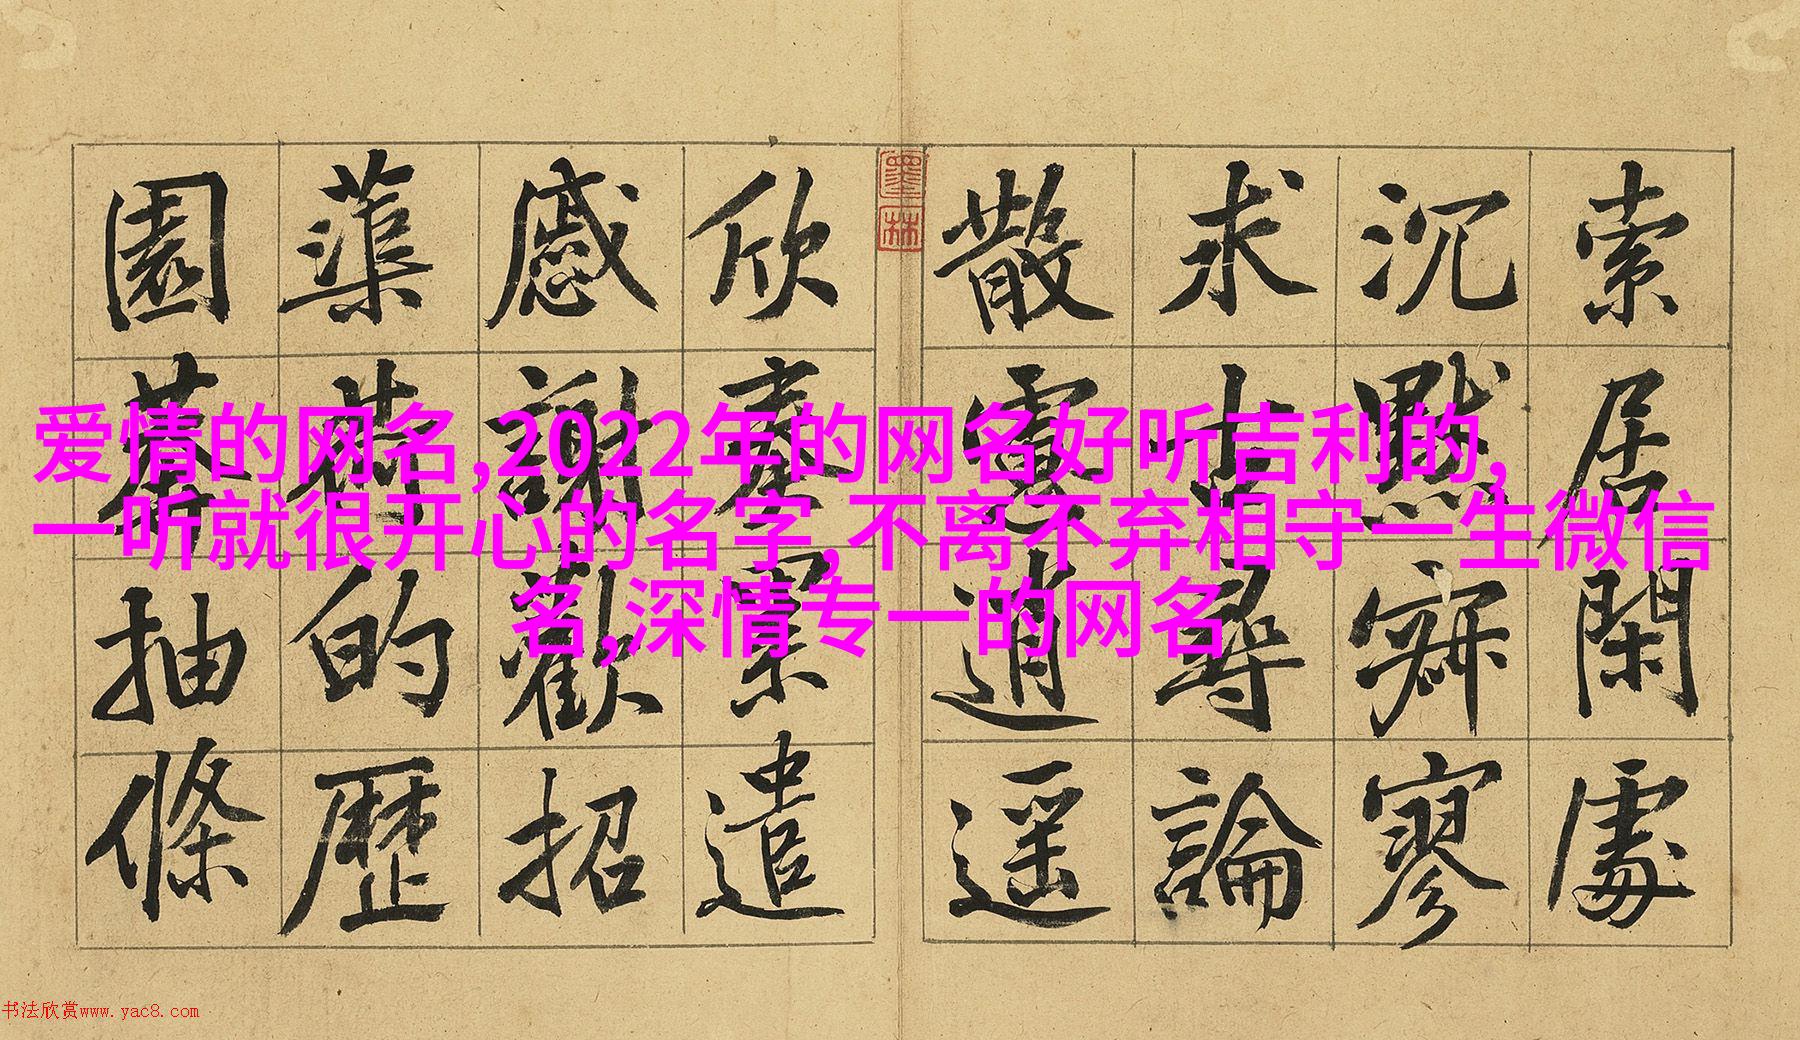 索居閑處
沉默寂寥
求古尋論
散慮逍遥
欣奏累遣
慼謝歡招
蕖荷的歷
園莽抽條
墨林
爱情的网名,2022年的网名好听吉利的,
一听就很开心的名字,不离不弃相守一生微信
名,深情专一的网名
书法欣赏www.yac8.com